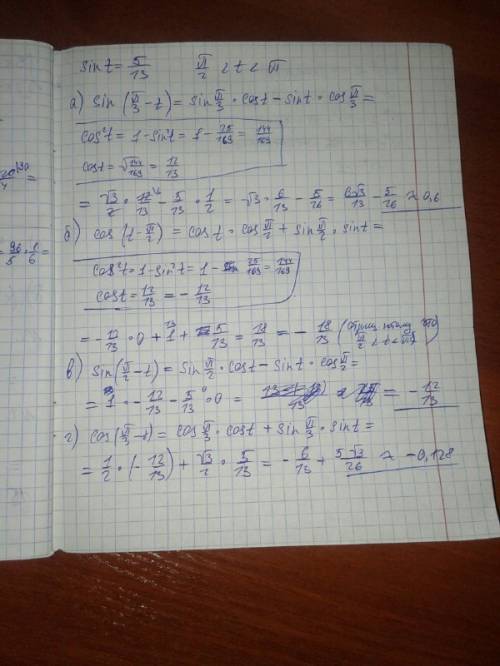 sin t = 5/13   π/2 < t < π
а) sin (π/3 - t) = sin π/3 · cos t - sin t · cos π/3 =
cos²t = 1 - sin²t = 1 - 25/169 = 144/169
cos t = √144/169 = 12/13
= √3/2 · 12/13 - 5/13 · 1/2 = √3 · 6/13 - 5/26 = 6√3/13 - 5/26 ≈ 0,6
б) cos (t - π/2) = cos t · cos π/2 + sin π/2 · sin t =
cos²t = 1 - sin²t = 1 - 25/169 = 144/169
cos t = 12/13 = - 12/13
= - 12/13 · 0 + 1 + 5/13 = 18/13 = - 18/13 (отриц потому что π/2 < t < π)
в) sin (π/2 - t) = sin π/2 · cos t - sin t · cos π/2 =
= 1 · - 12/13 - 5/13 · 0 = = - 12/13
г) cos (π/3 - t) = cos π/3 · cos t + sin π/3 · sin t =
= 1/2 · (- 12/13) + √3/2 · 5/13 = - 6/13 + 5√3/26 ≈ -0,128
= 96/5 · 1/6 =